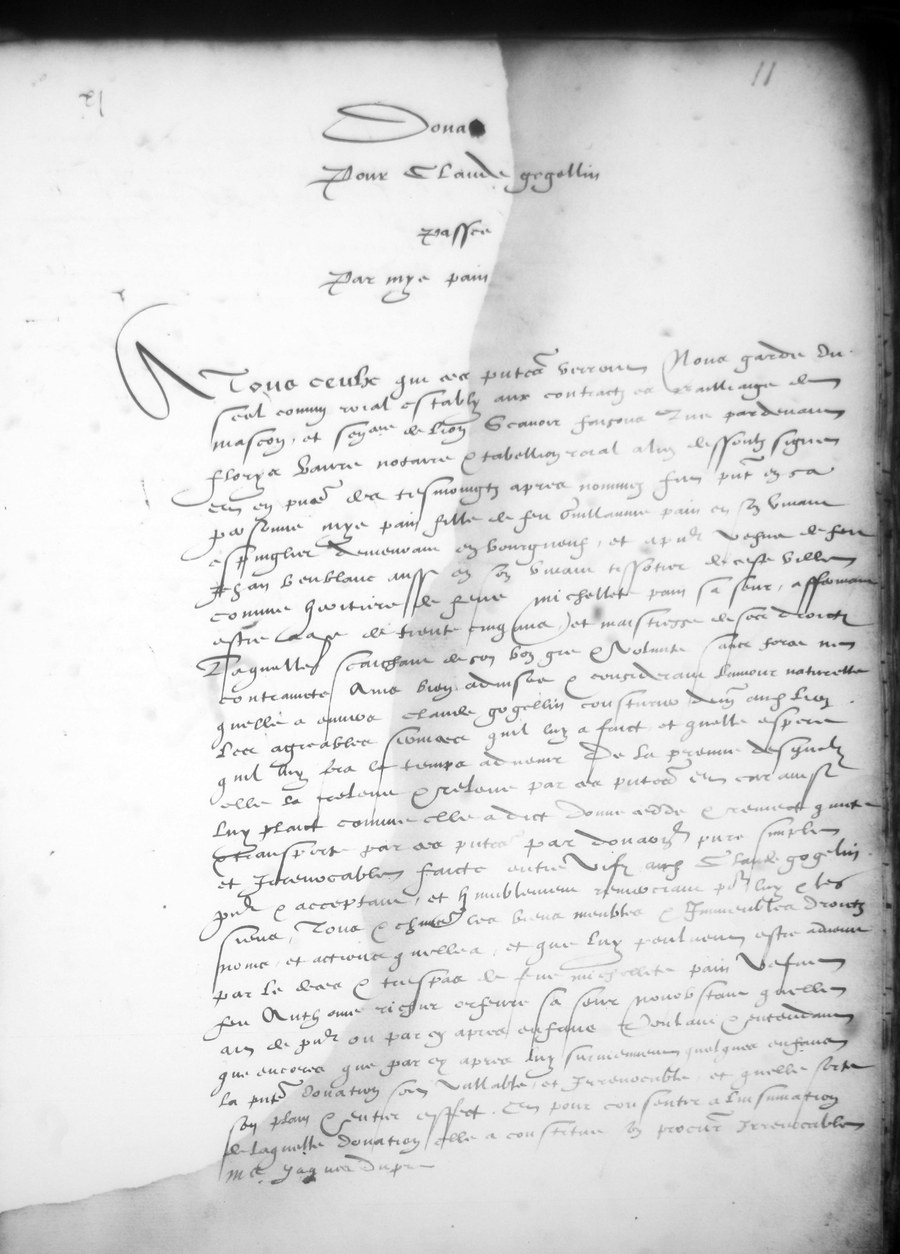 11
Dona
Pour Claude gogellin
passee
Par mye pain
A Tous ceulx qui ces putes verront Nous garde du
seel commun roial estably aux contractz es bailliaige de
mascon, et senesc de lion Scavoir faisons que pardevant
notaire & tabellion roial a lion dessoubz signe
et en pnce des tesmoingtz apres nommez put en sa
personne mye pain fille de feu Guillaume pain en son vivant
espinglier demeurant en bourgneuf, et a pnt vefve de feu
Jehan aussi en son vivant tissotier de ceste ville
comme heritiere de feue michellete pain sa seur, affermant
estre eagee de trente cinq ans et maistresse de ses droictz
Laquelle scaichant de son bon gre & volunte sans force ne
contraincte Ains bien advisee & considerant l'amour naturelle
quelle a envers Claude gogellin lion
Les agreables services quil luy a faict et quelle espere
quil luy fera le temps advenir De la preuve desquelz
elle la releve & releve par ces putes car ainsi
luy plaict comme elle a dict donne cedde & remect quicte
& transporte par ces putes par donaon pure simple
et Irrevocable faicte entre vifz aud Claude gogelin
pnt & acceptant, et humblement remerciant pour luy & les
siens, Tous & chacuns les biens meubles & Immeubles droictz
noms, et actions quelles, et que luy peulvent estre advenuz
par le deces & trespas de feue michellete pain vefve
feu Anthoine orfevre sa seur nonobstant quelle
ait de pnt ou par cy apres enfans Voulant & entendant
que encores que par cy apres luy surviennent quelques enfans
la pute donation soit vallable, et Irrevocable, et quelle sorte
son plain & entier effect. Et pour consentir a linsinuation
de laquelle donation elle a constitue son procur Irrevocable
Me Jaques dupre